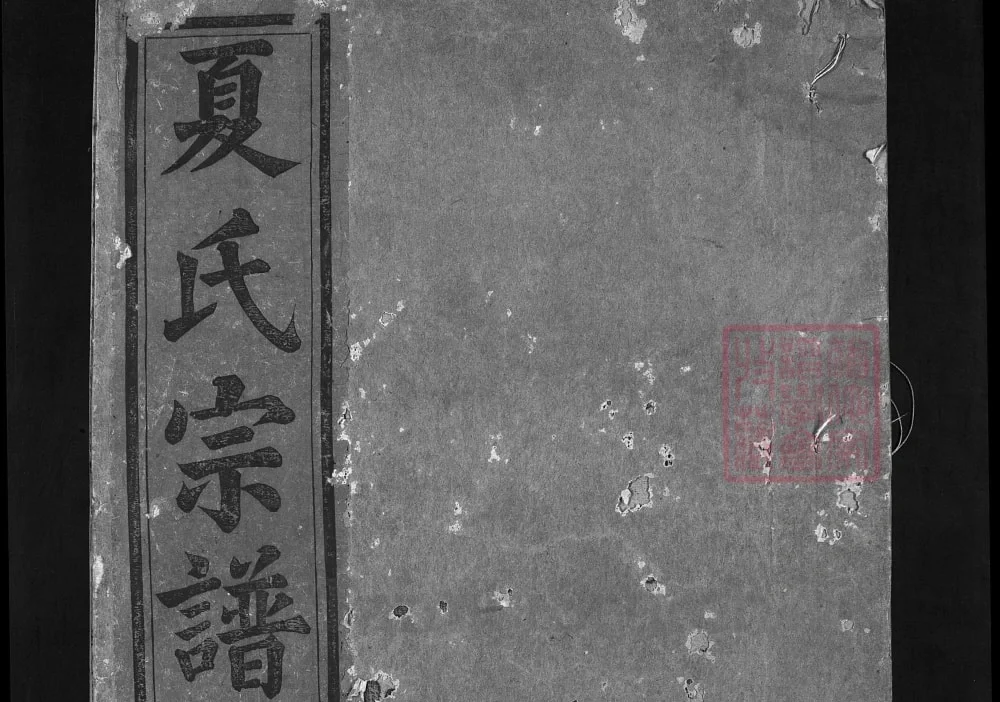 夏氏宗譜